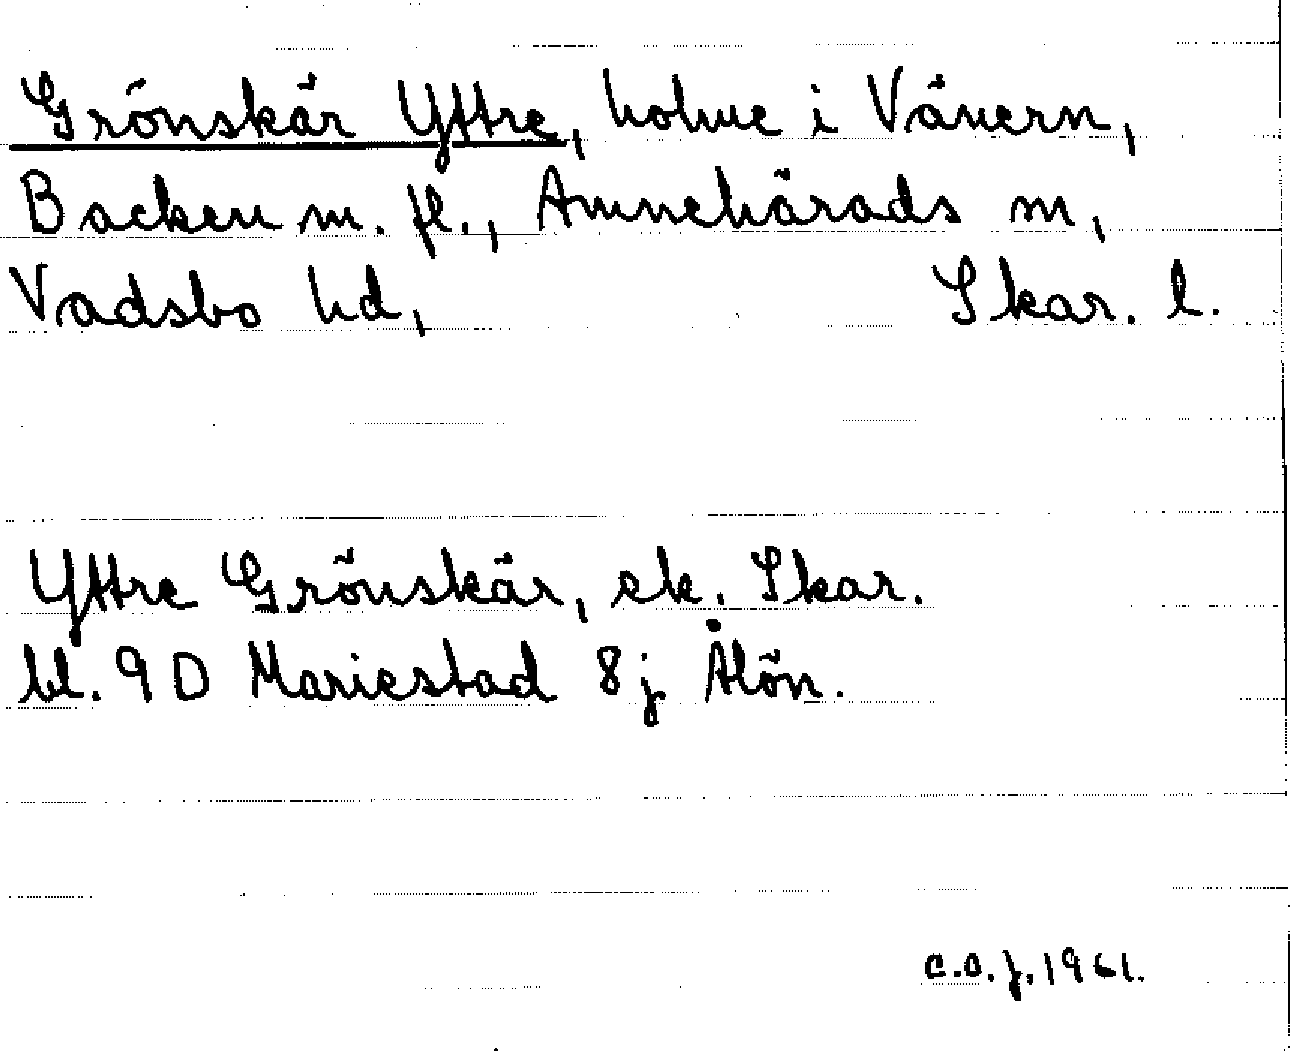 Grönskär Yttre, holme i Vänern,
Backen m. fl., Amnehärads sn,
Vadsbo hd, Skar. l.
Yttre Grönskär, ek. Skar.
bl. 9D Mariestad 8j Ålön.
C.O.J. 1961.